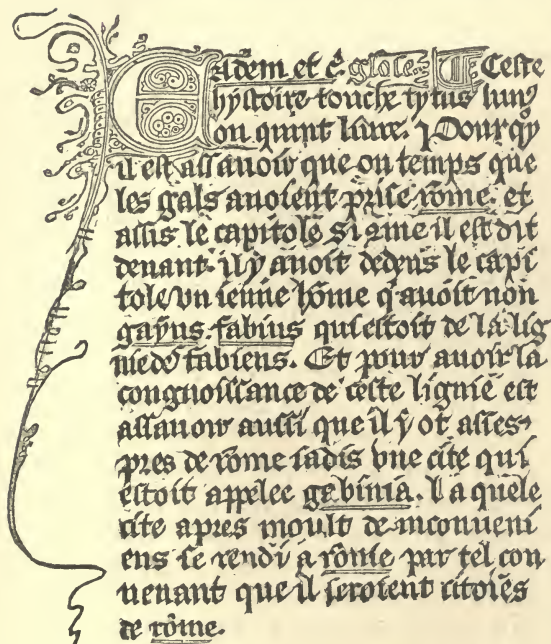 Eadem et c̃. glose. ¶ Ceste
hystoire touche tytus liuy9
ou quint liure. ⁊ Pourqy
il est assauoir que ou temps que
les gals auoient prise rõme. et
assis le capitole si 9me il est dit
deuant. il y auoit dedens le capi
tole vn ieune hõme q̃ auoit non
gayus fabius qui estoit de la lig
niede fabiens. Et pour auoir la
congnoissance de ceste lignie est
assauoir aussi que il y ot asses
pres de rome iadis vne cite qui
estoit appelee gabinia. La quele
cite apres moult de inconueni
ens se rendi a rõme par tel con
uenant que il seroient citoiẽs
de rõme.